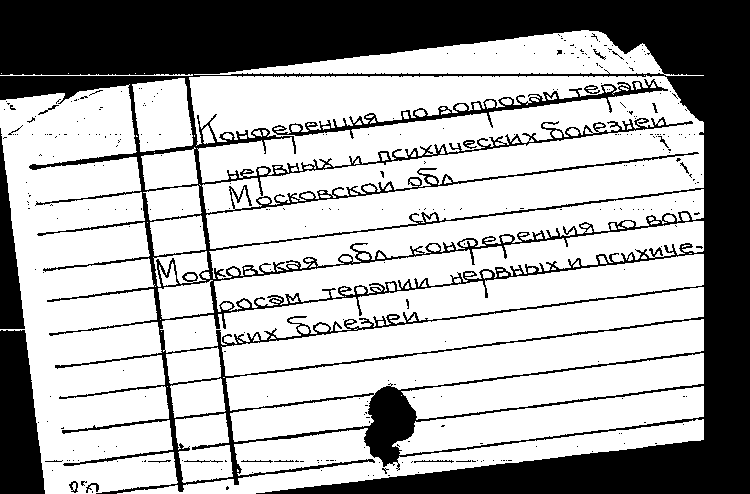 Конференция по вопросам терапи
нервных и психических болезней
Московской обл
см.
Московская обл. конференция по воп-
росам терапии нервных и психиче-
ских болезней.